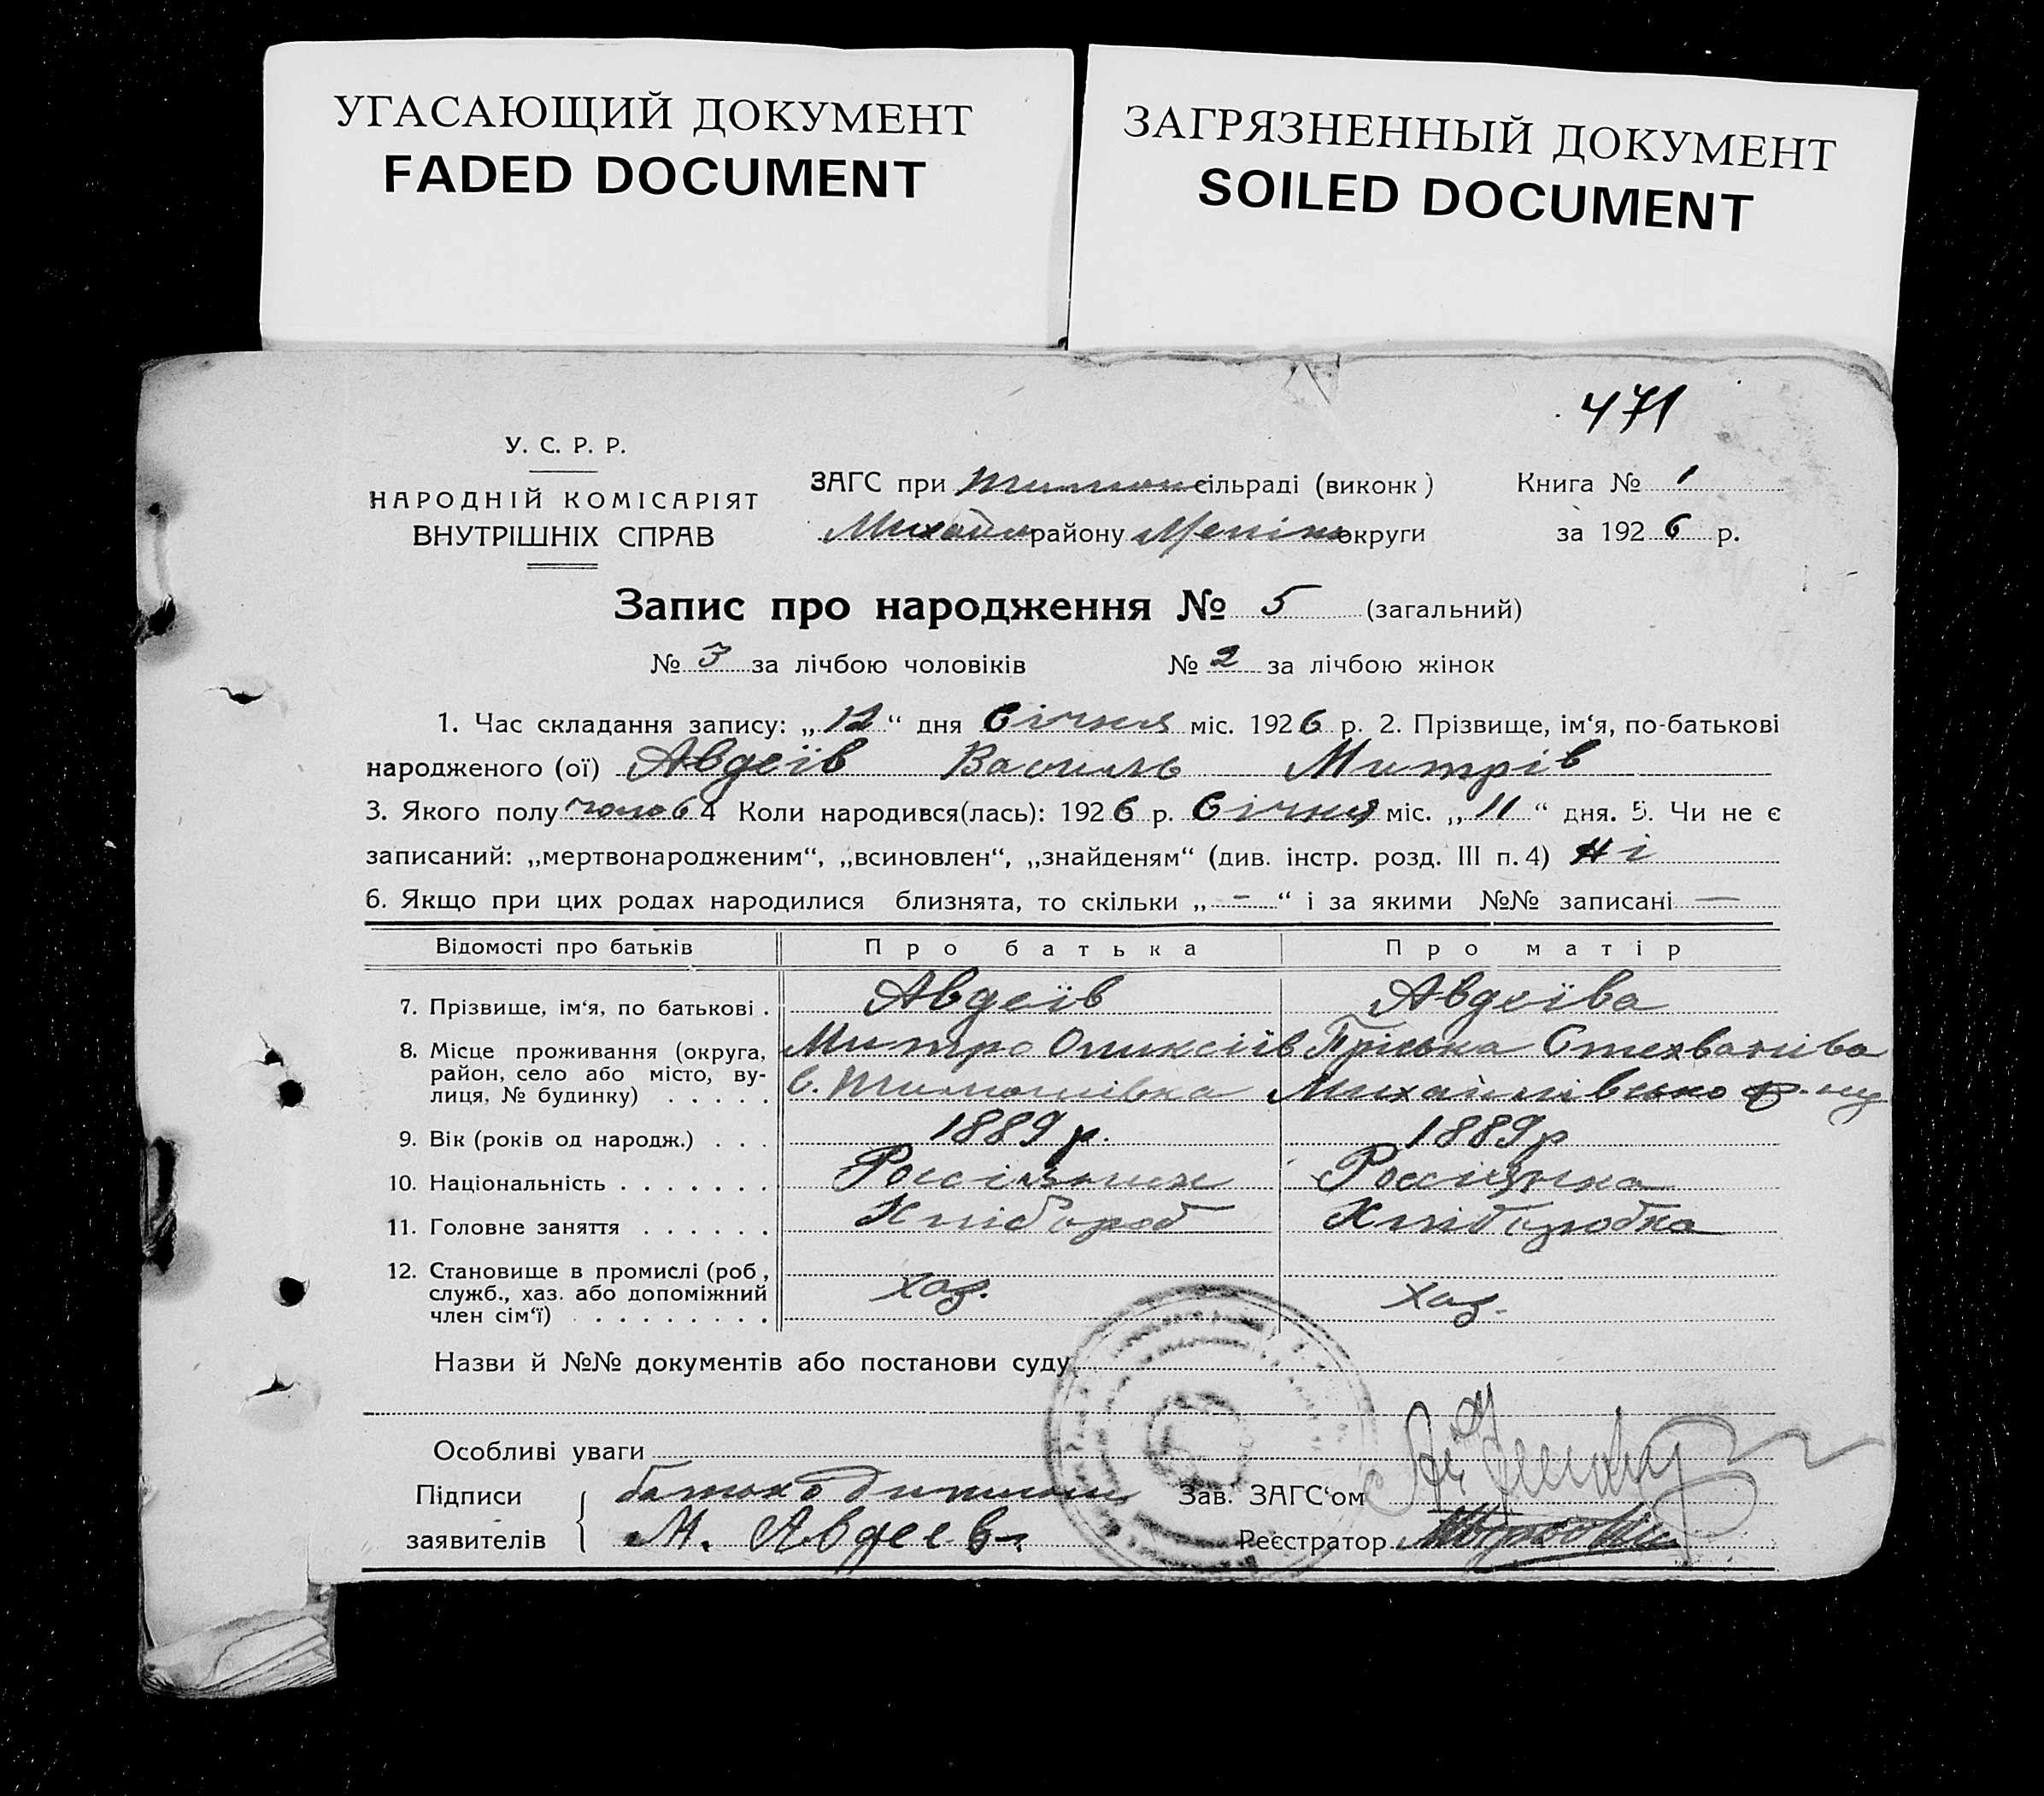 УГАСАЮЩИЙ ДОКУМЕНТ
FADED DOCUMENT
ЗАГРЯЗНЕННЫЙ ДОКУМЕНТ
SOILED DOCUMENT
471
У. С. Р. Р.
НАРОДНІЙ КОМІСАРІЯТ
ВНУТРІШНІХ СПРАВ
ЗАГС при Тимош сільраді (виконк)
Михайл району Меліт округи
Книга № 1
за 1926 р.
Запис про народження № 5 (загальний)
№ 3 за лічбою чоловіків № 2 за лічбою жінок
1. Час складання запису: „12“ дня Січня міс. 1926 р. 2. Прізвище, ім‘я, по-батькові
народженого (ої) Авдеїв Василь Митрів
3. Якого полу чолов 4 Коли народився(лась): 1926 р. Січня міс. „11“ дня. 5. Чи не є
записаний: „мертвонародженим“, „всиновлен“, „знайденям“ (див. інстр. розд. III п. 4) Ні
6. Якщо при цих родах народилися близнята, то скільки „ - “ і за якими №№ записані —
Відомості про батьків Про батька Про матір
7. Прізвище, ім‘я, по батькові . Авдеїв Авдеїва
Митро Оликсіїв Пріська Стехванива
8. Місце проживання (округа, район, село або місто, вулиця, № будинку) . . . . . С. Тимошівка Михайлівсько
9. Вік (років од народж.) . . . 1889 р. 1889 р
10. Національність . . . . . . . Россіянин Россіянка
11. Головне заняття . . . . . . Хлібороб Хліборобка
12. Становище в промислі (роб, служб., хаз. або допоміжний член сім‘ї) . . . . . . . . . хаз. хаз.
Назви й №№ документів або постанови суду
Особливі уваги
Підписи заявителів батько
М. Авдеев
Зав. ЗАГС‘ом
Реєстратор